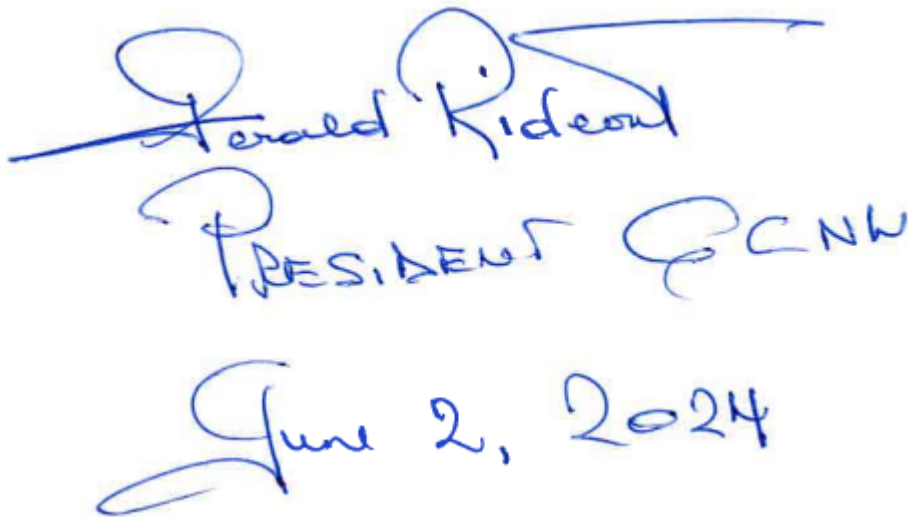 Gerald Rideout
PRESIDENT GCNW
June 2, 2024